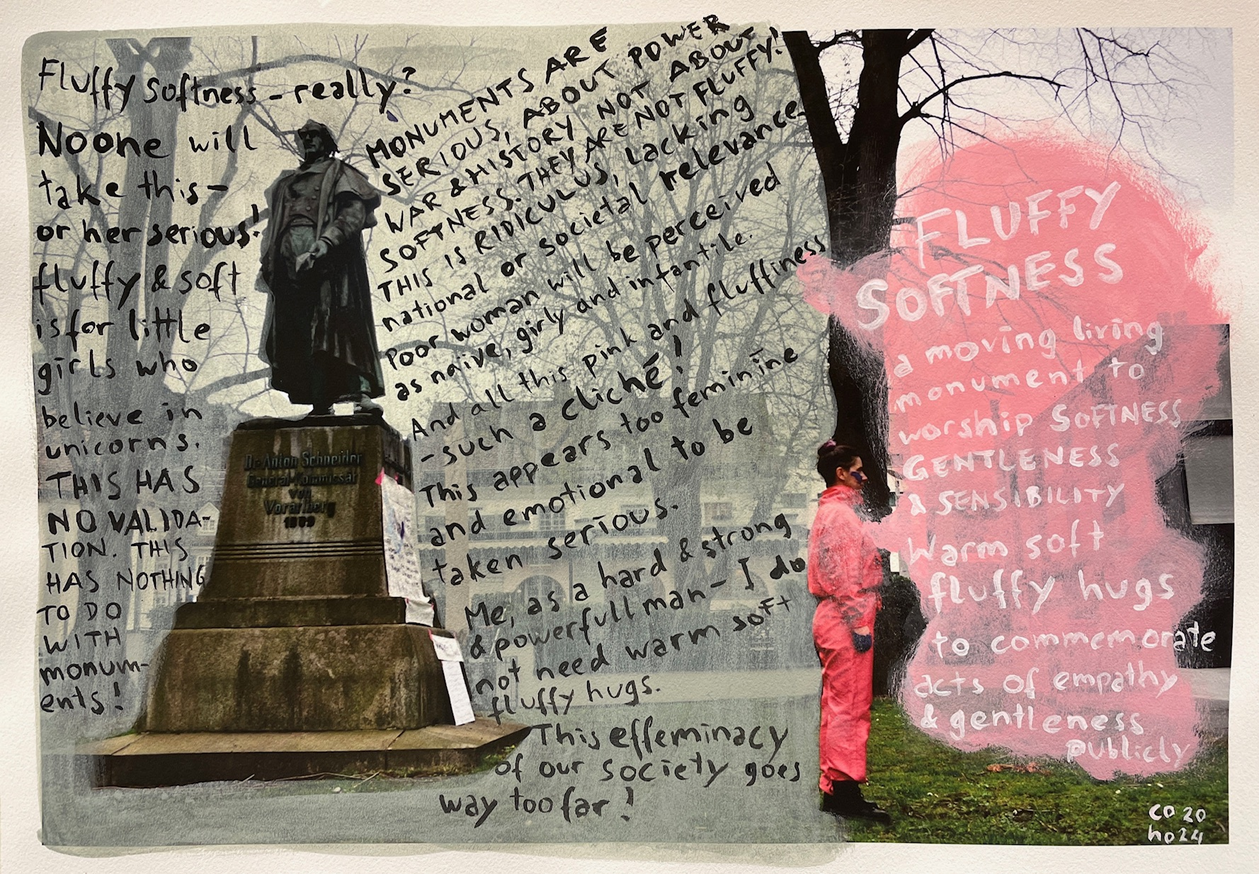 Fluffy softness – really?
No one will
take this –
or her serious!
fluffy & soft
is for little
girls who
believe in
unicorns.
THIS HAS
NO VALIDA-
TION. THIS
HAS NOTHING
TO DO
WITH
monum-
ents!
MONUMENTS ARE
SERIOUS, ABOUT POWER
WAR & HISTORY NOT ABOUT
SOFTNESS. THEY ARE NOT FLUFFY!
THIS IS RIDICULUS, Lacking
national or societal relevance.
Poor woman will be perceived
as naive, girly and infantile.
And all this pink and fluffiness
– such a cliché!
This appears too feminine
and emotional to be
taken serious.
Me, as a hard & strong
& powerfull man – I do
not need warm soft
fluffy hugs.
This effeminacy
of our society goes
way too far!
Dr. Anton Schneider
General-Kommissär
von
Vorarlberg
1809
FLUFFY
SOFTNESS
a moving living
monument to
worship SOFTNESS
GENTLENESS
& SENSIBILITY
Warm soft
fluffy hugs
to commemorate
acts of empathy
& gentleness
publicly
co 20
ho 24